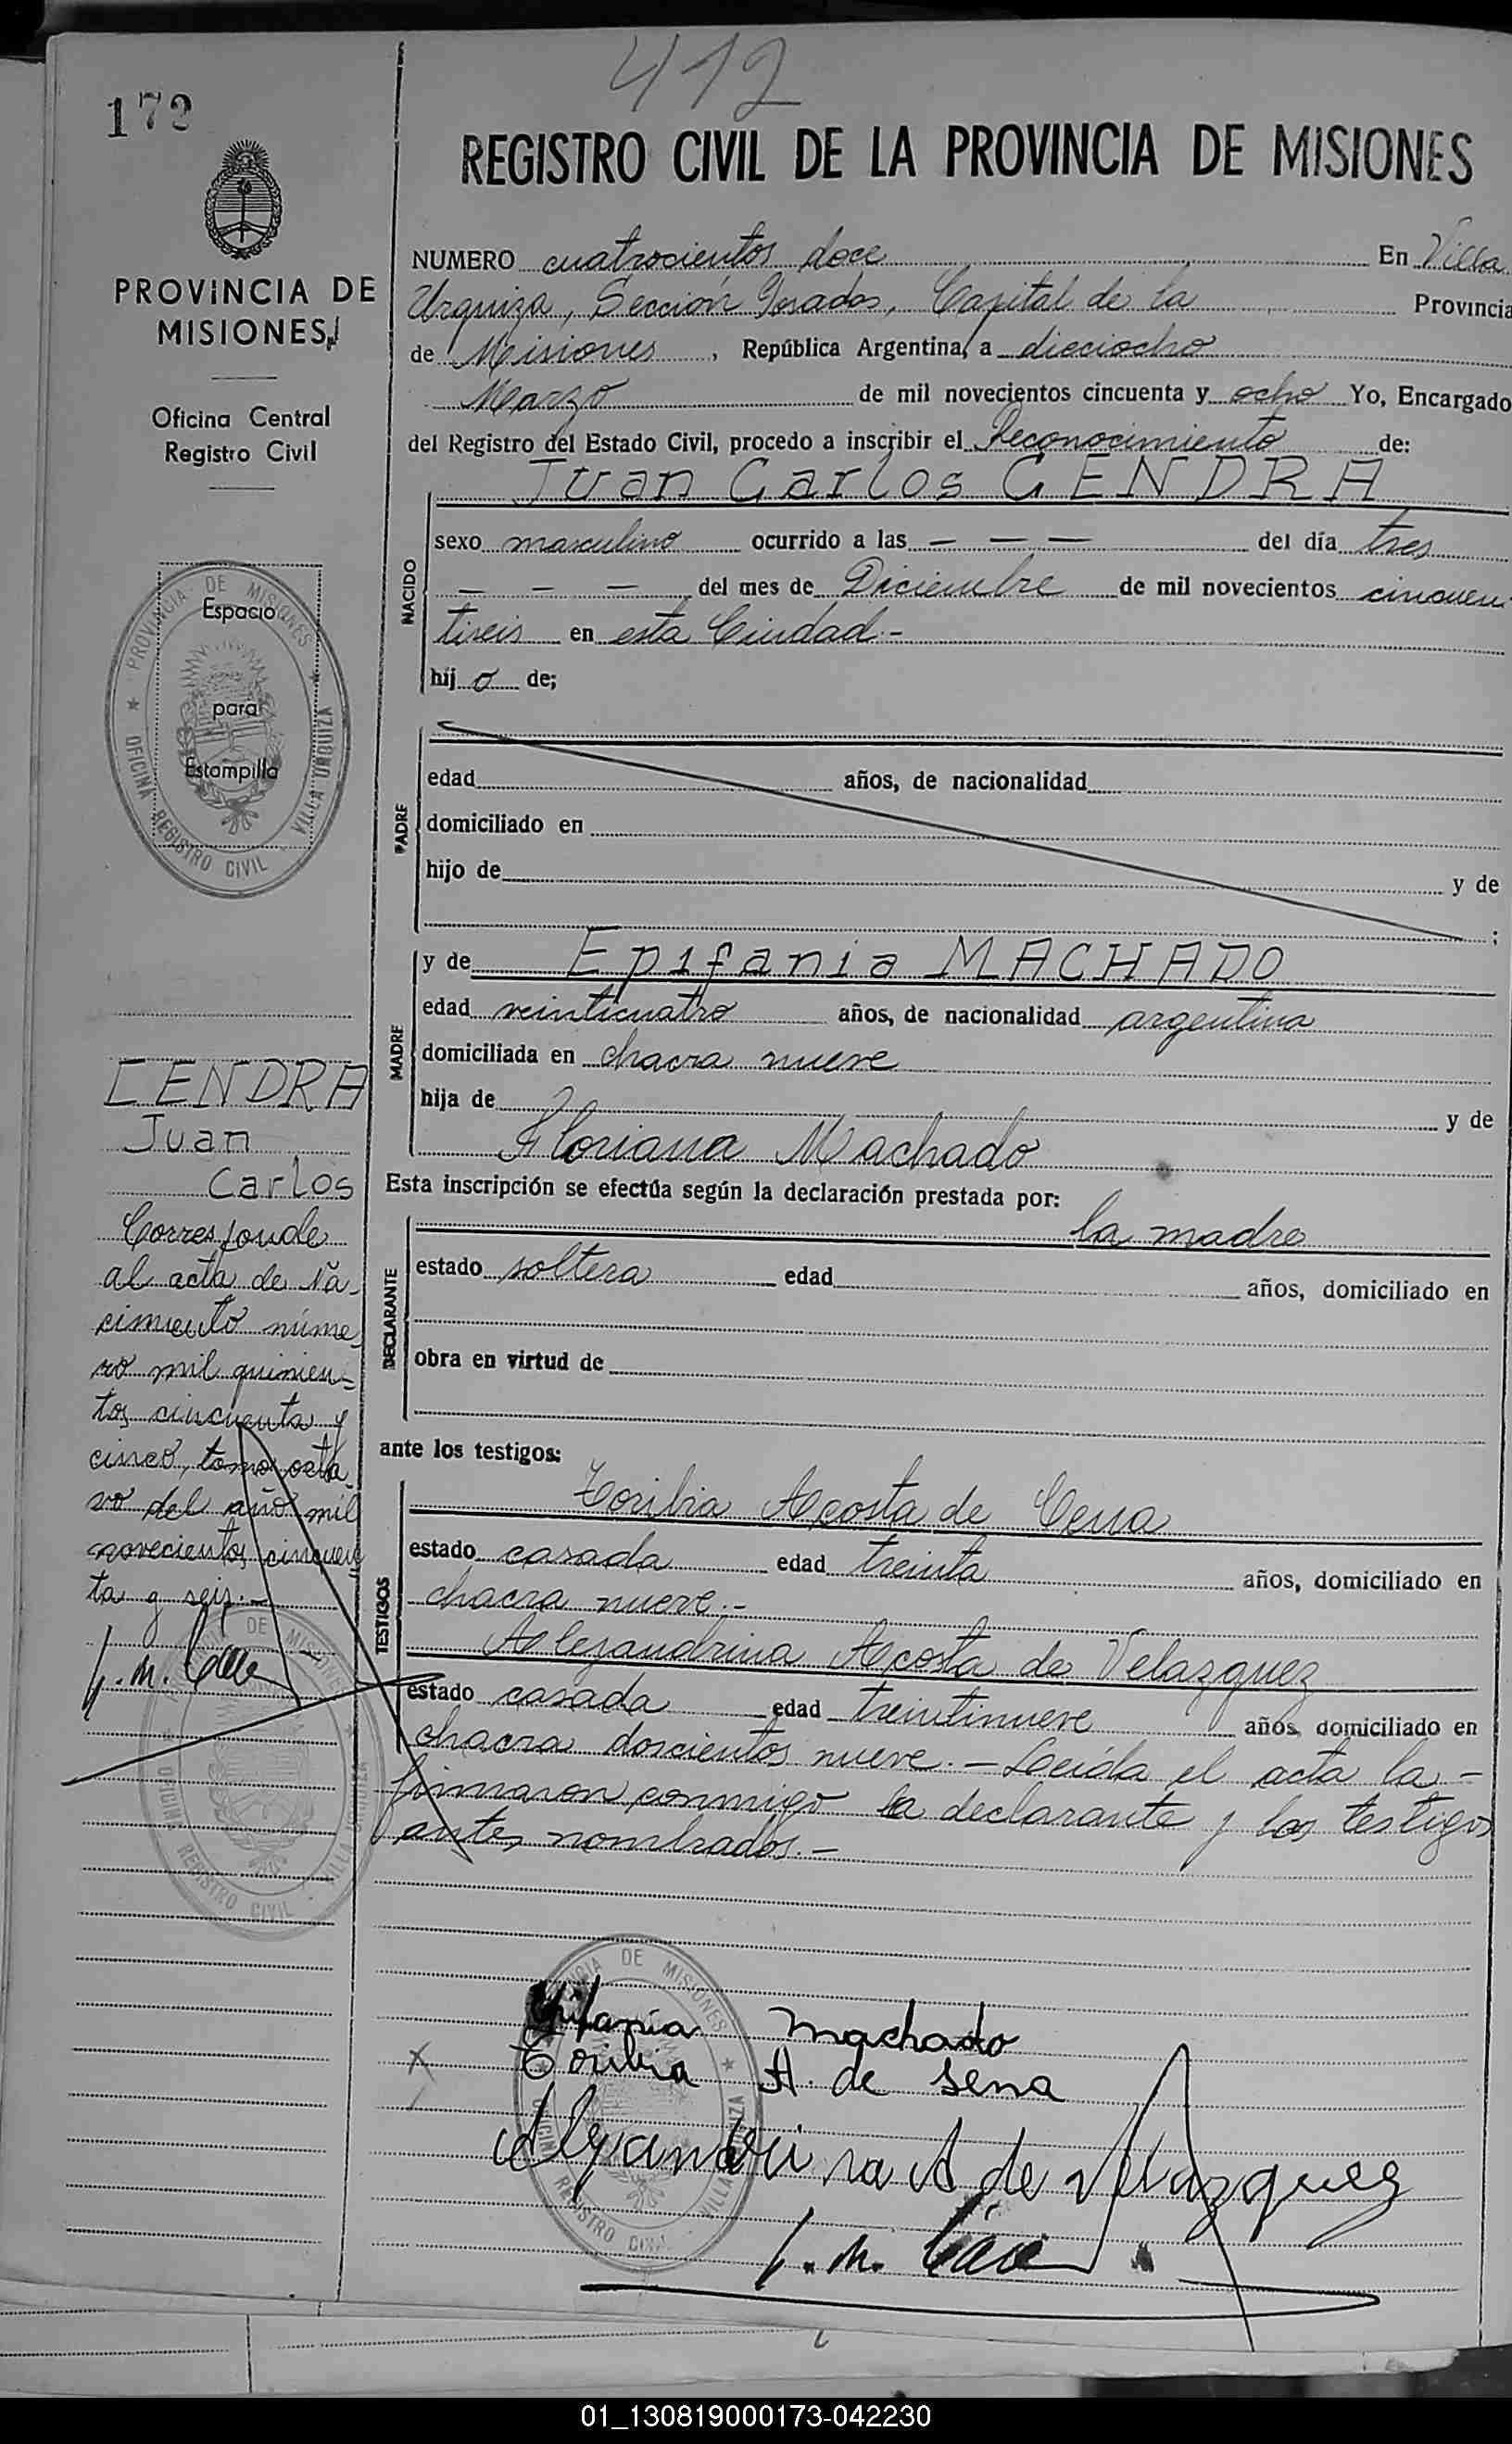 412
172
REGISTRO CIVIL DE LA PROVINCIA DE MISIONES
PROVINCIA DE
MISIONES
Oficina Central
Registro Civil
NUMERO cuatrocientos doce En Villa
Urquiza, Sección Posadas, Capital de la Provincia
de Misiones, República Argentina, a dieciocho
Marzo de mil novecientos cincuenta y ocho Yo, Encargado
del Registro del Estado Civil, procedo a inscribir el Reconocimiento de:
Juan Carlos CENDRA
NACIDO
sexo masculino ocurrido a las — — — del día tres
— — — del mes de Diciembre de mil novecientos cincuen
tiseis en esta Ciudad.-
hijo de;
PROVINCIA DE MISIONES
OFICINA REGISTRO CIVIL VILLA URQUIZA
Espacio
para
Estampilla
PADRE
edad años, de nacionalidad
domiciliado en
hijo de y de
;
MADRE
y de Epifania MACHADO
edad veinticuatro años, de nacionalidad argentina
domiciliada en chacra nueve
hija de y de
Floriana Machado
Esta inscripción se efectúa según la declaración prestada por:
DECLARANTE
la madre
estado soltera edad años, domiciliado en
obra en virtud de
ante los testigos:
TESTIGOS
Toribia Acosta de Cena
estado casada edad treinta años, domiciliado en
chacra nueve.-
Alejandrina Acosta de Velazquez
estado casada edad treintinueve años domiciliado en
chacra doscientos nueve.- Leída el acta la -
firmaron conmigo la declarante y los testigos
antes nombrados.-
CENDRA
Juan
Carlos
Corresponde
al acta de Na-
cimiento núme
ro mil quinien-
tos cincuenta y
cinco, tomo octa
vo del año mil
novecientos cincuen
ta y seis.-
DE MISIONES
OFICINA REGISTRO CIVIL VILLA URQUIZA
DE MISIONES
REGISTRO CIVIL VILLA
Epifania Machado
Toribia A. de Sena
Alejandrina A de Velazquez
01_130819000173-042230